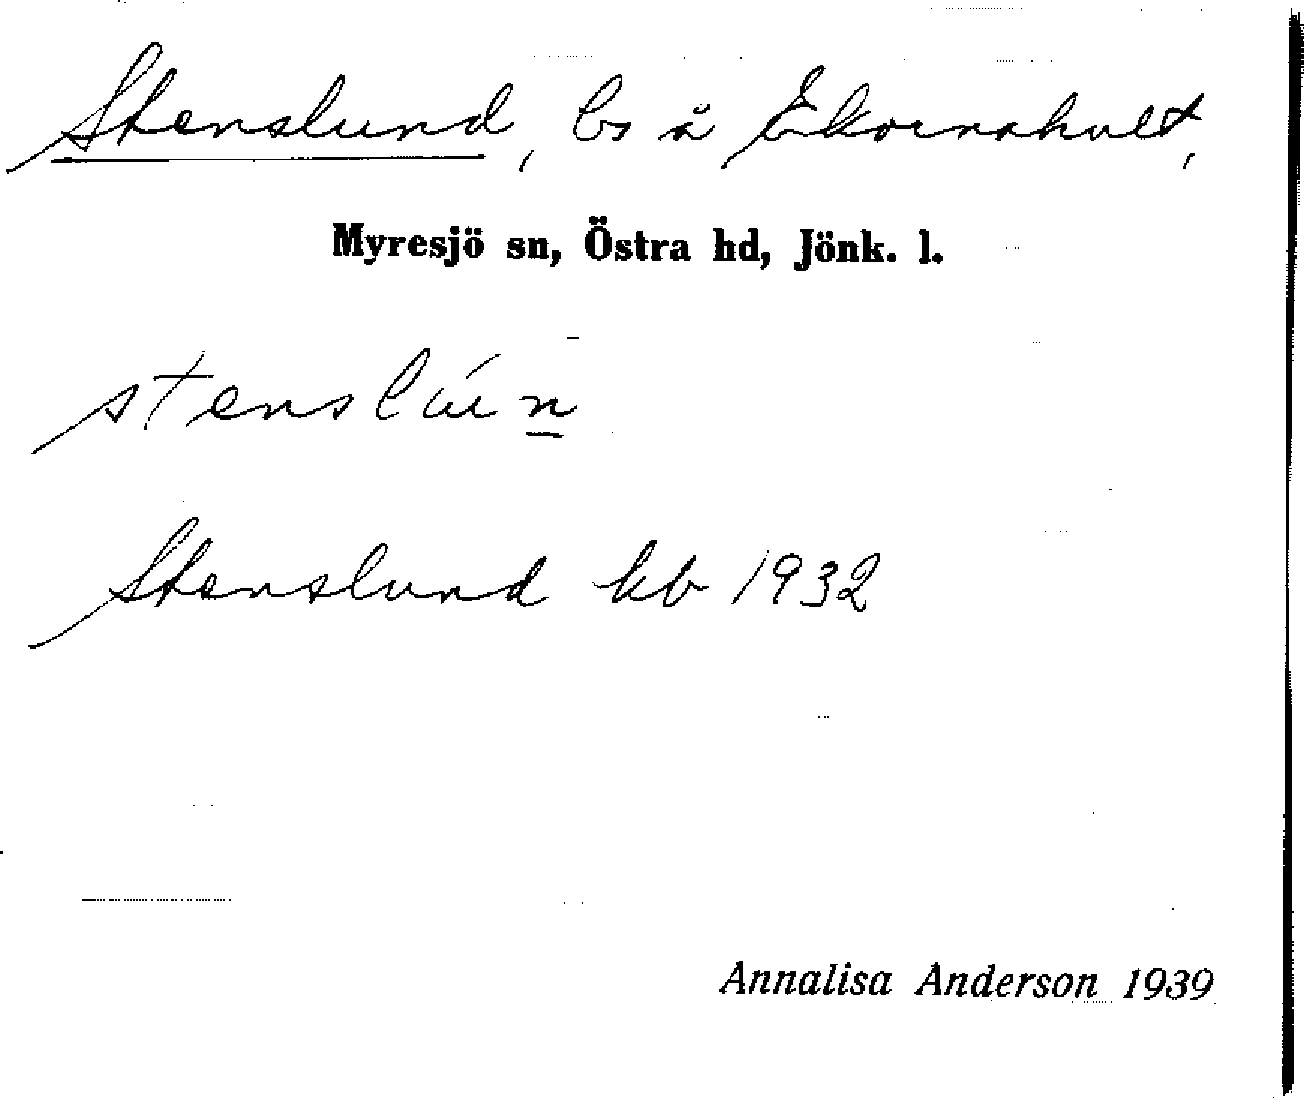 Stenslund, ls å Ekornahult,
Myresjö sn, Östra hd, Jönk. l.
stenslún
Stenslund kb 1932
Annalisa Anderson 1939